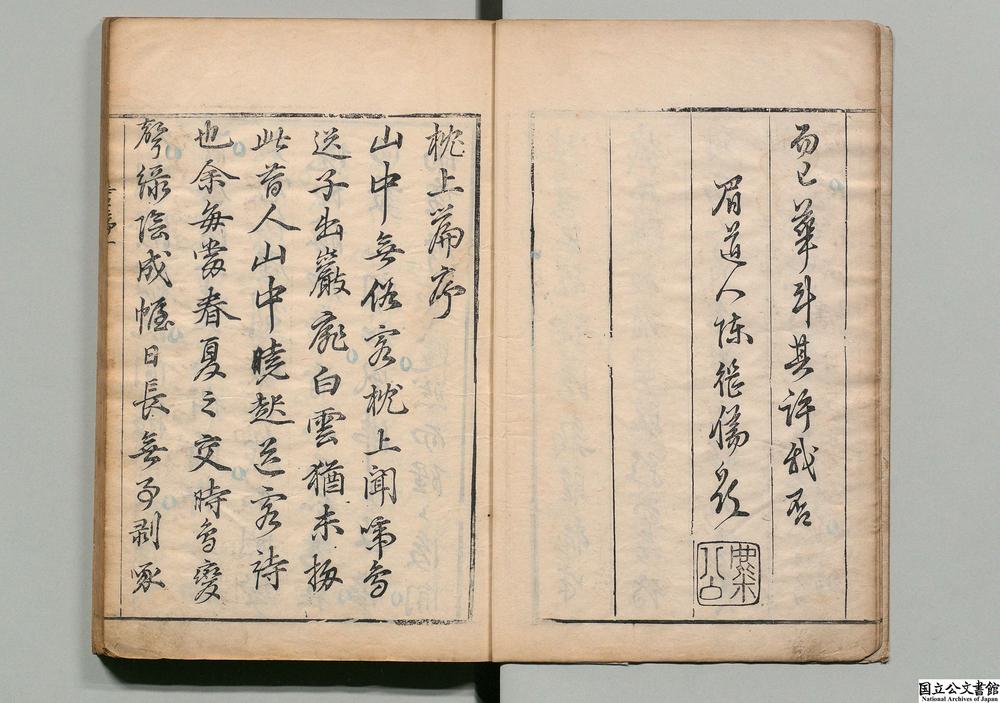 而已華
其許我否
眉道人陳
枕上篇序
山中無俗客枕上聞啼鳥
送子出巖扉白雲猶未掃
此昔人山中曉起送客詩
也余每當春夏之交時鳥變
聲綠陰成幄日長無事剥啄
国立公文書館
National Archives of Japan